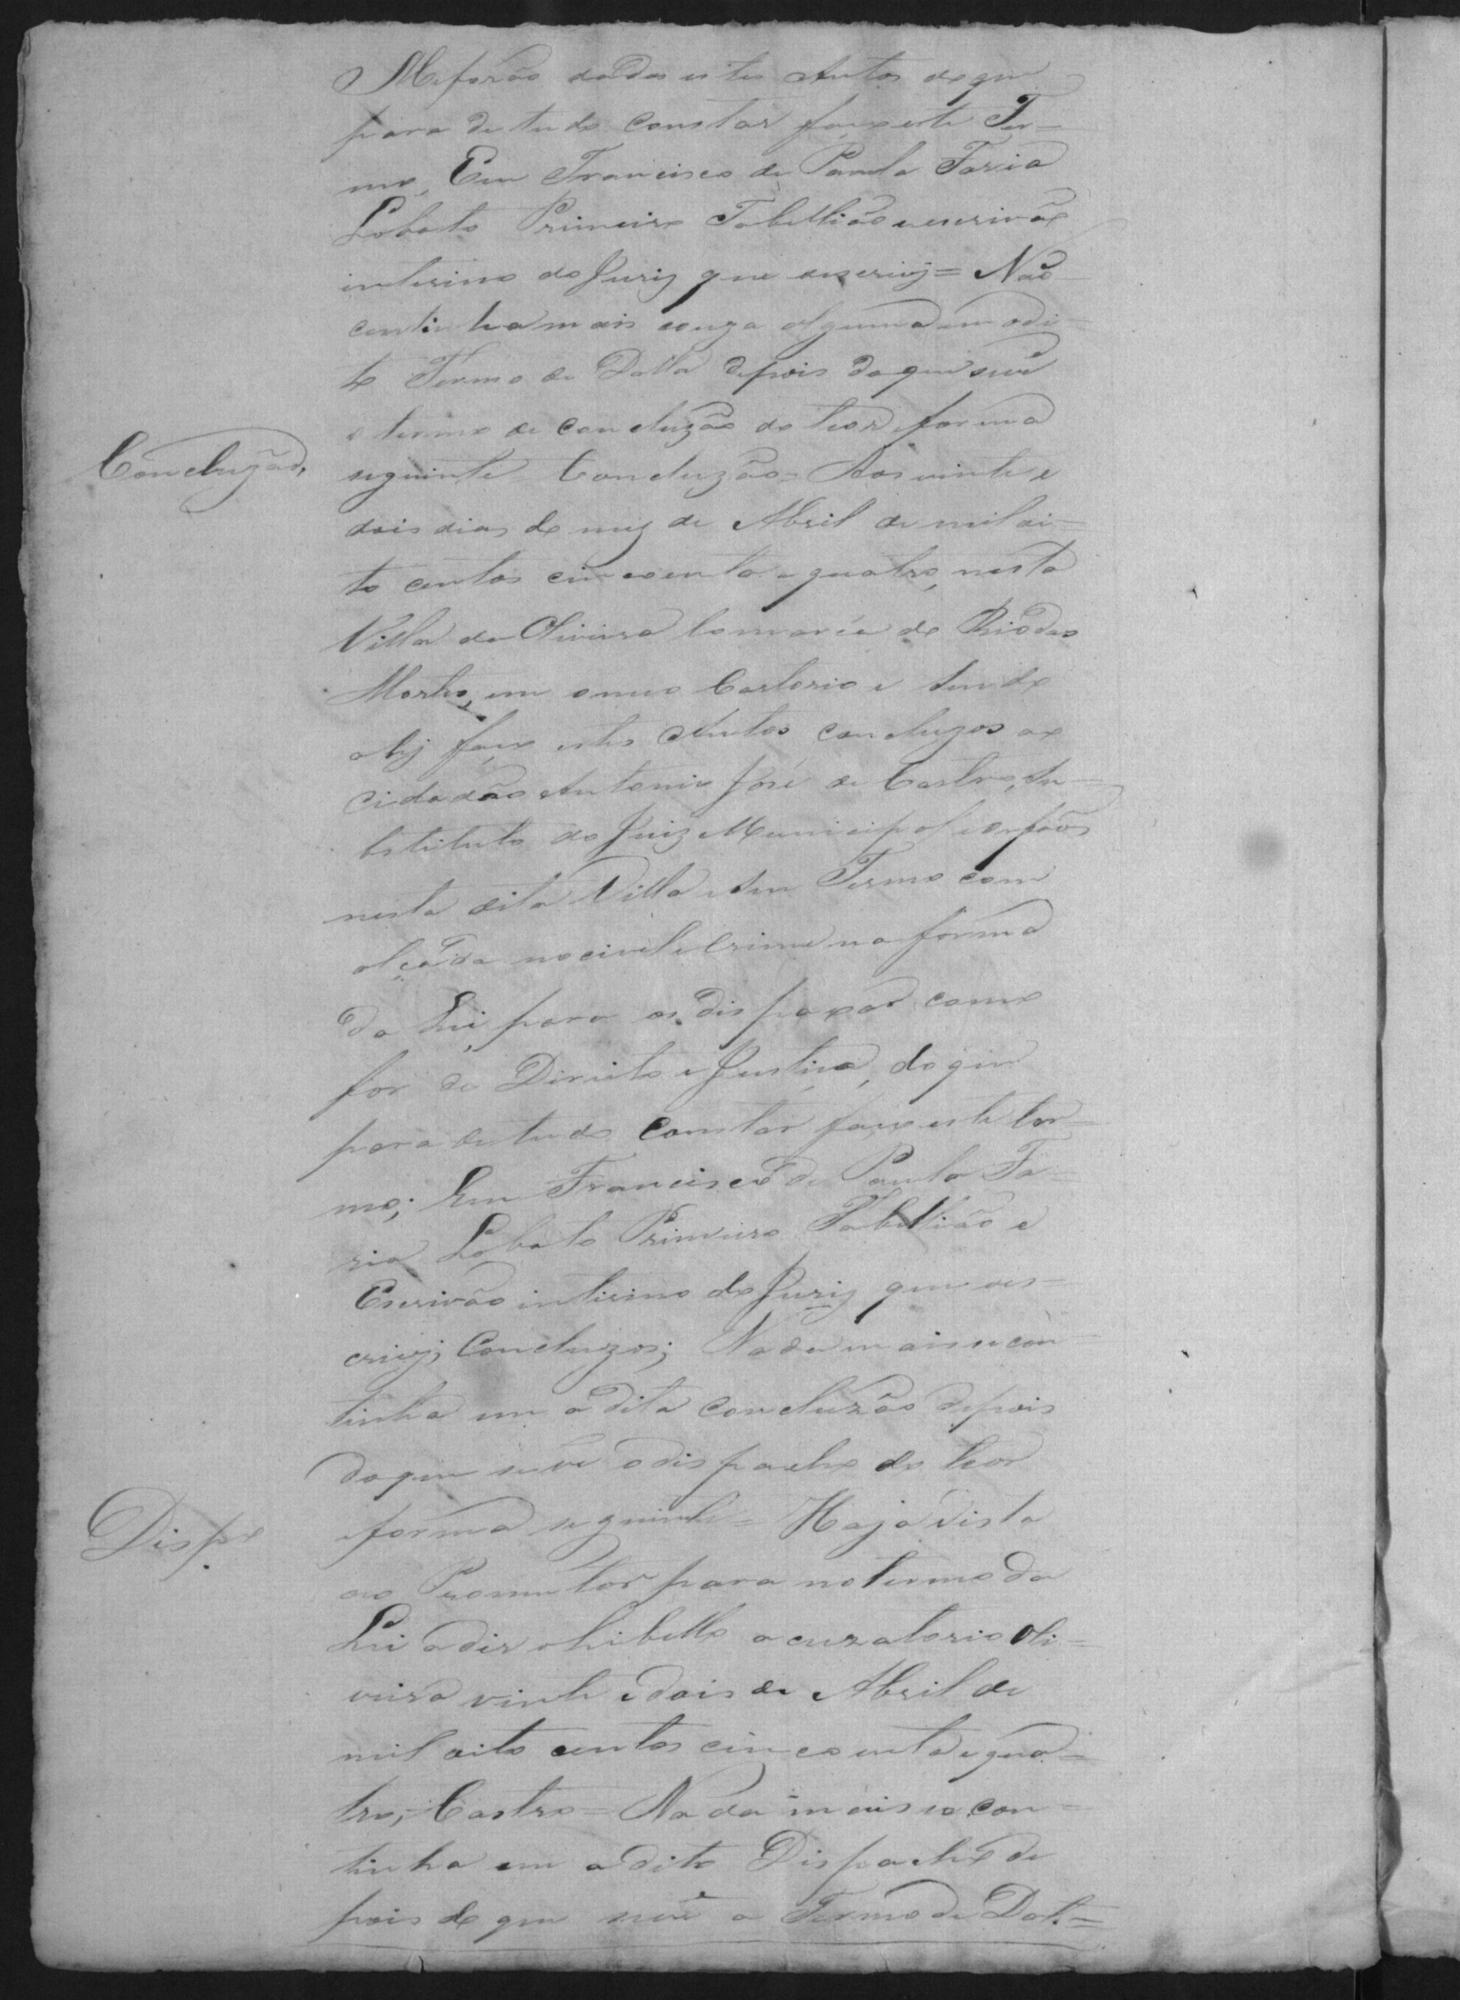 Me forão dados estes Autos do que
para de tudo constar faço este Ter-
mo, Eu Francisco de Paula Faria
Lobato Primeiro Tabellião e escrivão
interino do Jury que escrevy = Não
continha mais couza alguma em o di-
to Termo de Datta depois do que se vê
o termo de concluzão do teor e forma
Concluzão,
seguinte Concluzão = Aos vinte e
dois dias do mez de Abril de mil oi-
to centos cincoenta e quatro, nesta
Villa de Oliveira Comarca do Rio das
Mortes, em o meo Cartorio e sendo
ahy faço estes Autos concluzos ao
cidadão Antonio José de Castro, Su-
bstituto do Juiz Municipal e orfãos
nesta dita Villa e seu Termo com
alçada no civel e Crime na forma
da Lei para os dispaxar como
for de Direito e Justiça, do que
para de tudo constar faço este ter-
mo; Eu Francisco de Paula Fa-
ria Lobato Primeiro Tabellião e
Escrivão interino do Jury que es-
crevy; Concluzos; Nada mais se con-
tinha em a dita concluzão depois
do que se vê o dispacho do teor
Dispo
e forma seguinte = Haja vista
ao Promutor para no termo da
Lei adir o libello acuzatorio Oli-
veira vinte e dois de Abril de
mil oito centos cincoenta e qua-
tro, Castro = Nada mais se con-
tinha em o dito Dispacho de
pois do que se vê o Termo de Dat.=